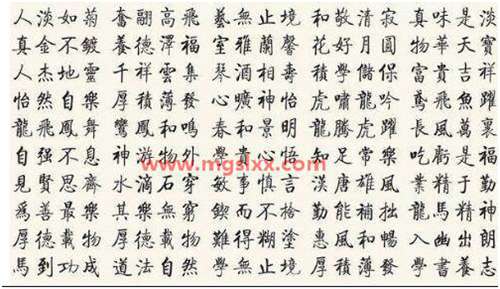 人淡如菊 奮翮高飛 藝無止境 和敬清寂 真味是淡
真金不鍍 養德澤福 室雅蘭馨 花好月圓 物華天寶
人杰地靈 千祥雲集 琴 相壽 積學儲 富貴吉祥
怡然自樂 厚積薄發 曠神怡 虎嘯龍吟 鳶飛魚躍
龍飛鳳舞 鸞鳳和鳴 春和景明 龍騰虎躍 長風萬裏
自强不息 神游物外 學貴心悟 知足常樂 吃虧是福
www.mgslxx.com
見賢思齊 水滴石穿 敏事慎言 漢唐雄風 業精于勤
爲善最樂 其樂無窮 鍥而不捨 勤能補拙 龍馬精神
厚德載物 厚德載物 難得糊塗 惠風和暢 入幽出朗
馬到功成 道法自然 學無止境 厚積薄發 學書養志